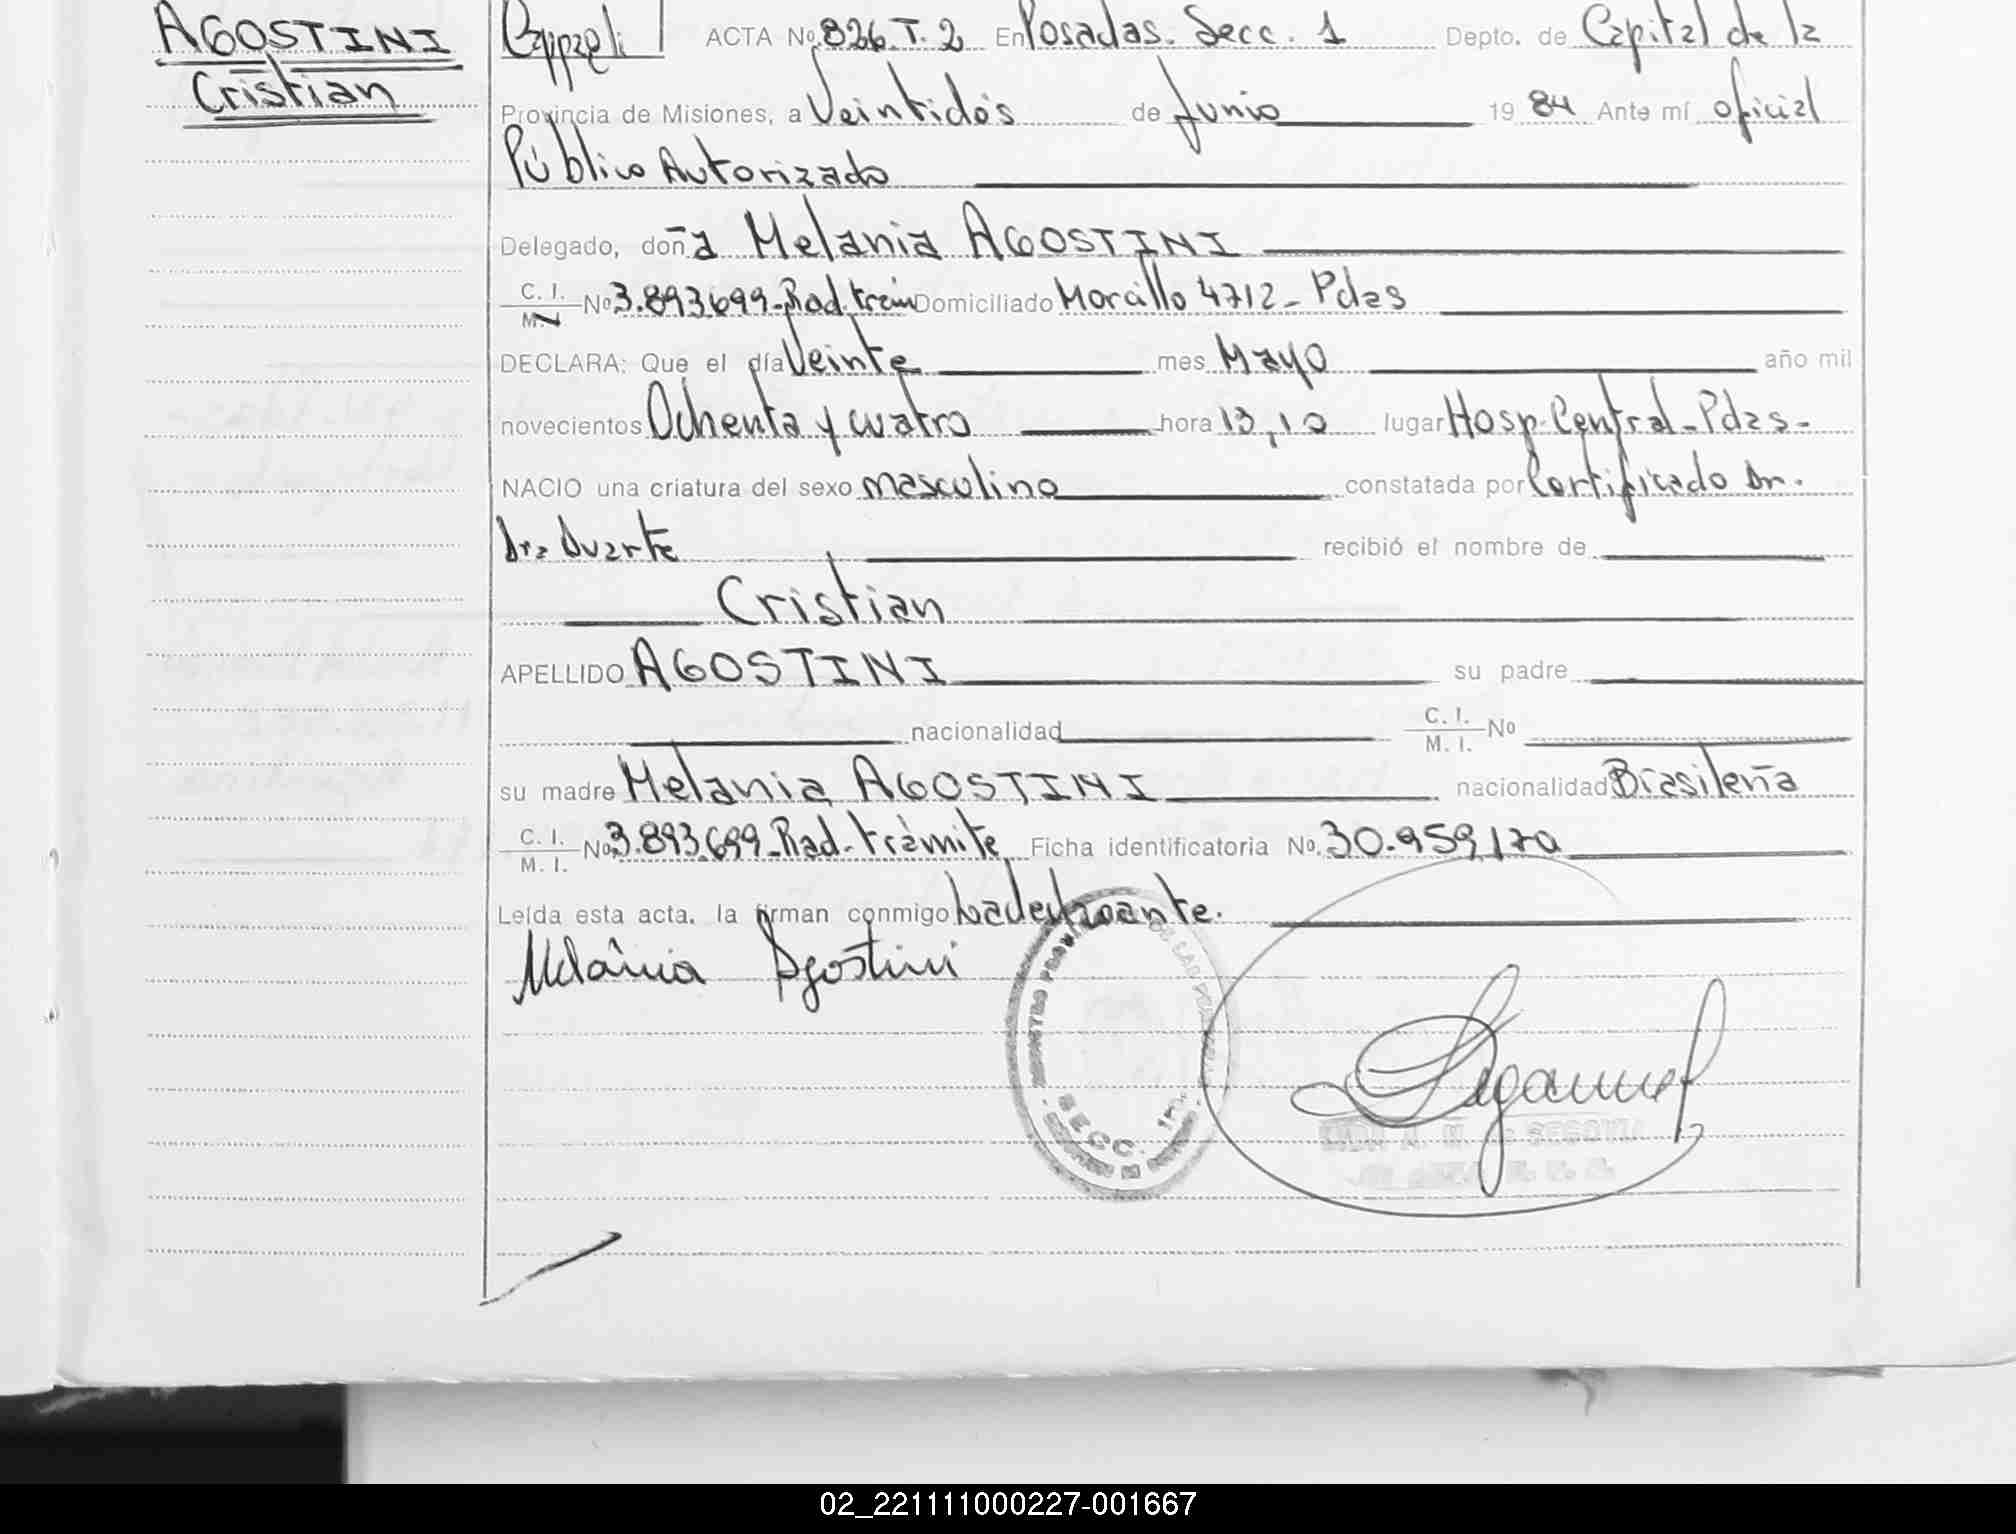 AGOSTINI
Cristian
ACTA No. 826.T.2 En Posadas. Secc. 1 Depto. de Capital de la
Provincia de Misiones, a Veintidós de Junio 1984 Ante mí oficial
Público Autorizado
Delegado, doña Melania AGOSTINI
C. I. M. No 3.893.699-Rad. trám Domiciliado Morcillo 4712- Pdas
DECLARA: Que el día Veinte mes Mayo año mil
novecientos Ochenta y cuatro hora 13,10 lugar Hosp. Central-Pdas-
NACIO una criatura del sexo masculino constatada por Certificado Dr.
Dra Duarte recibió el nombre de
Cristian
APELLIDO AGOSTINI su padre
nacionalidad C. I. M. I. No
su madre Melania AGOSTINI nacionalidad Brasileña
C. I. M. I. No 3.893.699-Rad. trámite Ficha identificatoria No. 30.959.170
Leída esta acta, la firman conmigo
Melânia Agostini
SECC. 1ra.
02_221111000227-001667